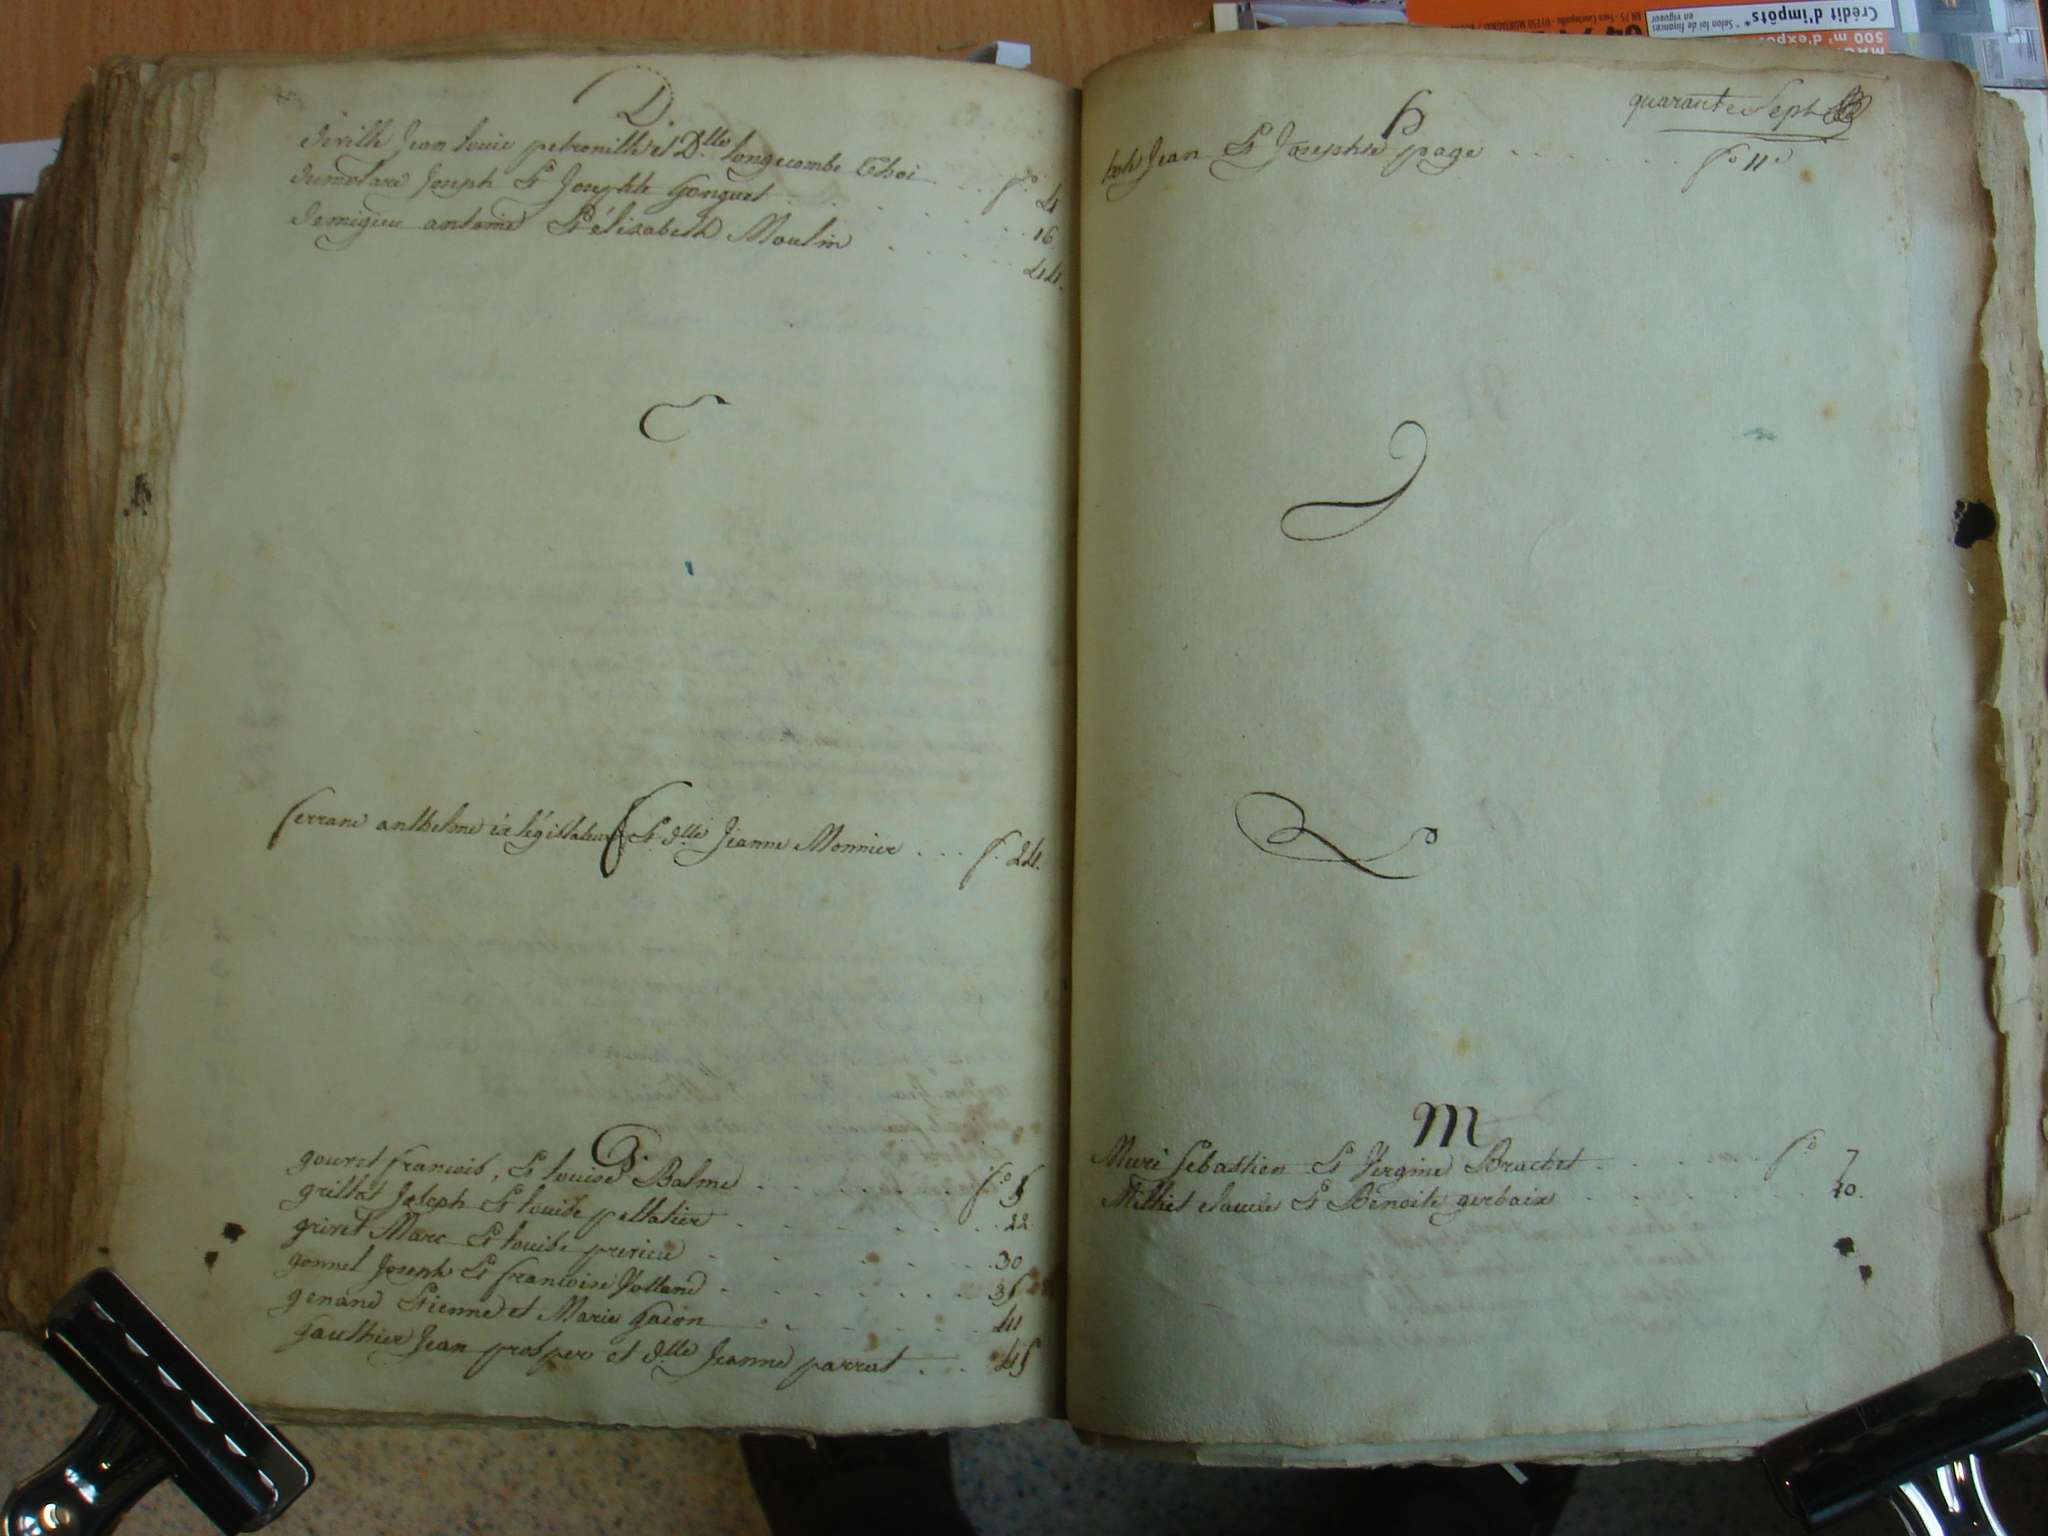 D.
deville Jean louis petronille et Dlle longecombe thoi . . fo 4
dumolard Joseph Et Josephte Gonguet . . . . 16
demigieu antoine Et élisabeth Moulin . . . . 44.
E
F
ferrand anthelme ex législateur Et dlle Jeanne Monnier . . . f. 24.
G.
gouret francois, Et louise Balme . . . fo 5
grillet Joseph Et louise pellatier . . . . 22
grinet Marc Et louise . . . . 30
gonnet Joseph Et francoise Volland . . . . 35
genand Etienne et Marie gaion . . . . 41
gauthier Jean prosper et dlle Jeanne parrat . . . 45
quarante Sept
h
Jean Et Josephte page . . . . fo 11
J
L
M
Sebastien Et Vergine Brachet . . . . fo 7
Milliet Claude Et Benoite gerbaix . . . . 10.
Crédit d'impôts*
* Selon loi de finances
en vigueur
500 m² d'expo